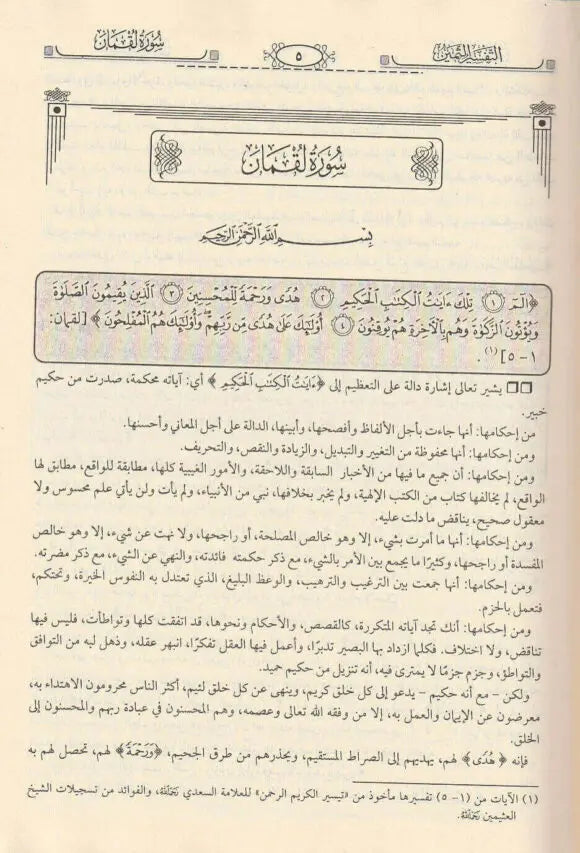 التفسير الثمين
٥
سورة لقمان
سورة لقمان
بسم الله الرحمن الرحيم
﴿الٓمٓ ۝١ تِلْكَ ءَايَٰتُ ٱلْكِتَٰبِ ٱلْحَكِيمِ ۝٢ هُدًى وَرَحْمَةً لِّلْمُحْسِنِينَ ۝٣ ٱلَّذِينَ يُقِيمُونَ ٱلصَّلَوٰةَ
وَيُؤْتُونَ ٱلزَّكَوٰةَ وَهُم بِٱلْءَاخِرَةِ هُمْ يُوقِنُونَ ۝٤ أُو۟لَٰٓئِكَ عَلَىٰ هُدًى مِّن رَّبِّهِمْ ۖ وَأُو۟لَٰٓئِكَ هُمُ ٱلْمُفْلِحُونَ﴾ [لقمان:
١-٥](١).
يشير تعالى إشارة دالة على التعظيم إلى ﴿ءَايَٰتُ ٱلْكِتَٰبِ ٱلْحَكِيمِ﴾ أي: آياته محكمة، صدرت من حكيم
خبير.
من إحكامها: أنها جاءت بأجل الألفاظ وأفصحها، وأبينها، الدالة على أجل المعاني وأحسنها.
ومن إحكامها: أنها محفوظة من التغيير والتبديل، والزيادة والنقص، والتحريف.
ومن إحكامها: أن جميع ما فيها من الأخبار السابقة واللاحقة، والأمور الغيبية كلها، مطابقة للواقع، مطابق لها
الواقع، لم يخالفها كتاب من الكتب الإلهية، ولم يخبر بخلافها، نبي من الأنبياء، ولم يأت ولن يأتي علم محسوس ولا
معقول صحيح، يناقض ما دلت عليه.
ومن إحكامها: أنها ما أمرت بشيء، إلا وهو خالص المصلحة، أو راجحها، ولا نهت عن شيء، إلا وهو خالص
المفسدة أو راجحها، وكثيرًا ما يجمع بين الأمر بالشيء، مع ذكر حكمته فائدته، والنهي عن الشيء، مع ذكر مضرته.
ومن إحكامها: أنها جمعت بين الترغيب والترهيب، والوعظ البليغ، الذي تعتدل به النفوس الخيرة، وتحتكم،
فتعمل بالحزم.
ومن إحكامها: أنك تجد آياته المتكررة، كالقصص، والأحكام ونحوها، قد اتفقت كلها وتواطأت، فليس فيها
تناقض، ولا اختلاف. فكلما ازداد بها البصير تدبرًا، وأعمل فيها العقل تفكرًا، انبهر عقله، وذهل لبه من التوافق
والتواطؤ، وجزم جزمًا لا يمترى فيه، أنه تنزيل من حكيم حميد.
ولكن - مع أنه حكيم - يدعو إلى كل خلق كريم، وينهى عن كل خلق لئيم، أكثر الناس محرومون الاهتداء به،
معرضون عن الإيمان والعمل به، إلا من وفقه الله تعالى وعصمه، وهم المحسنون في عبادة ربهم والمحسنون إلى
الخلق.
فإنه ﴿هُدًى﴾ لهم، يهديهم إلى الصراط المستقيم، ويحذرهم من طرق الجحيم، ﴿وَرَحْمَةً﴾ لهم، تحصل لهم به
(١) الآيات من (١-٥) تفسيرها مأخوذ من «تيسير الكريم الرحمن» للعلامة السعدي رحمه الله، والفوائد من تسجيلات الشيخ
العثيمين رحمه الله.